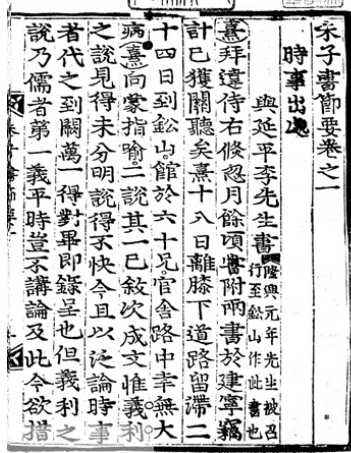 朱子書節要卷之一
時事出處
與延平李先生書 隆興元年先生被召
行至鈆山作此書也
熹拜違侍右倐忽月餘頃嘗附兩書於建寧竊
計已獲關聽矣熹十八日離膝下道路留滯二
十四日到鈆山館於六十兄官舍路中幸無大
病熹向蒙指喻二說其一已敘次成文惟義利
之說見得未分明說得不快今且以泛論時事
者代之到闕萬一得對畢即錄呈也但義利之
說乃儒者第一義平時豈不講論及此今欲措